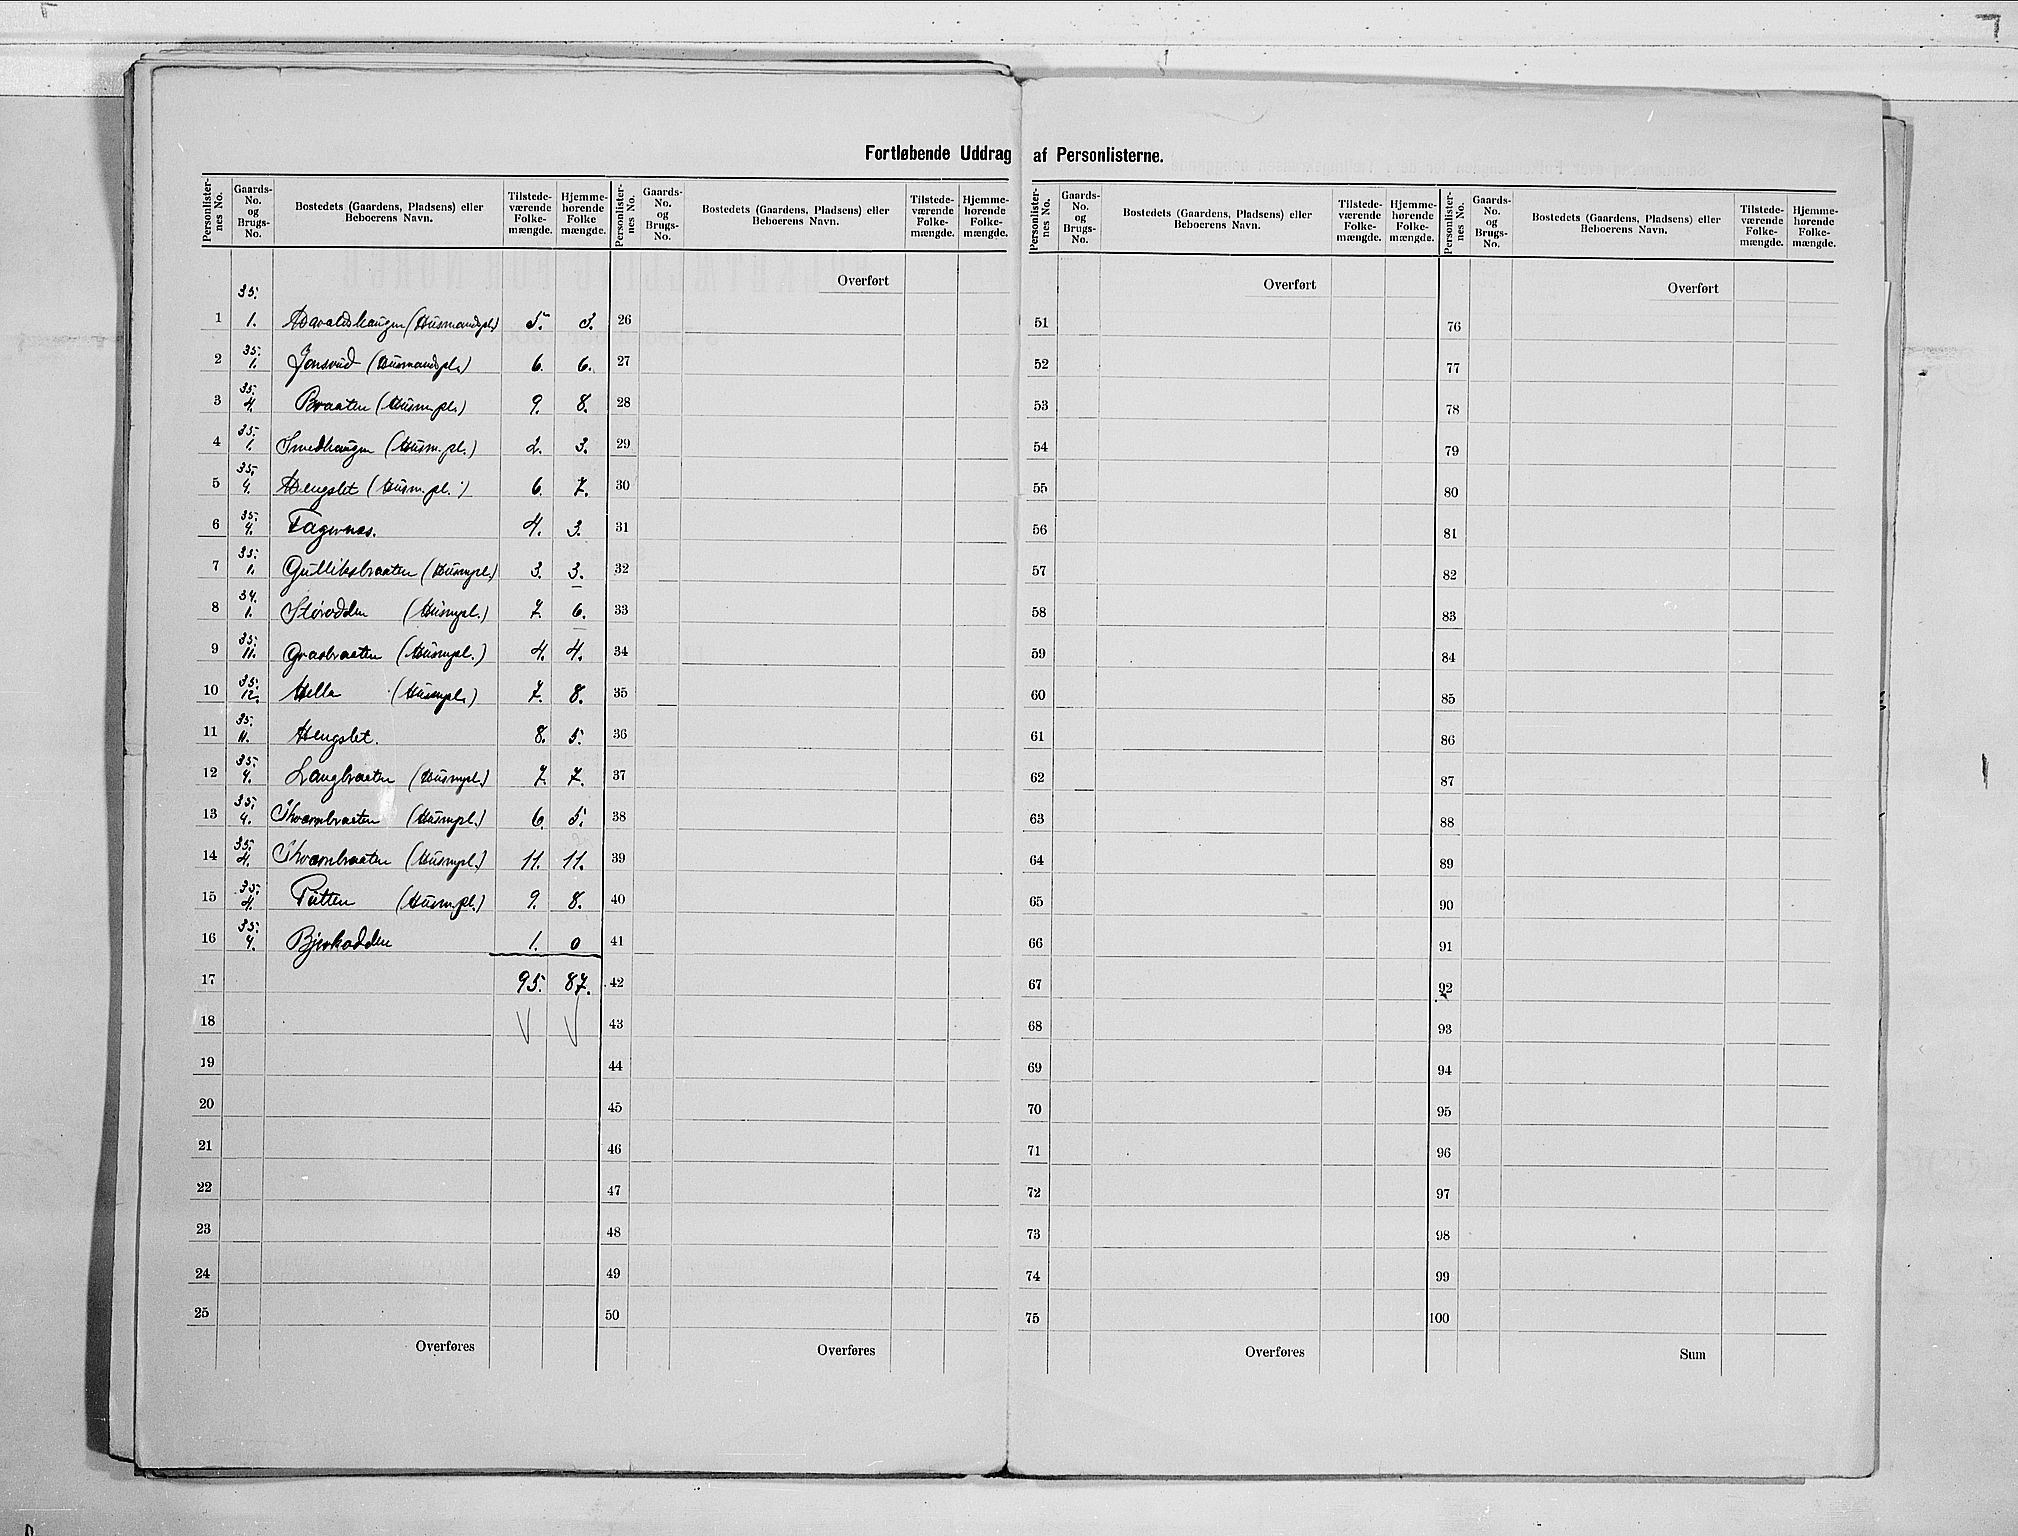 Fortløbende Uddrag af Personlisterne.
Personlister-nes No.
Gaards-No. og Brugs-No.
Bostedets (Gaardens, Pladsens) eller Beboerens Navn.
Tilstede-værende Folke-mængde.
Hjemme-hørende Folke mængde.
1 35. 1. (Husmandspl.) 5. 3.
2 35. 1. Jonsrud (Husmandspl.) 6. 6.
3 35. 4. Braaten (Husm.pl.) 9. 8.
4 35. 1. Smedhaugen (Husm.pl.) 2. 3.
5 35. 4. Hengslet (Husm.pl.) 6. 7.
6 35. 4. Fagernæs. 4. 3.
7 35. 1. Gulliksbraaten (Husmpl.) 3. 3.
8 34. 1. Storodden (Husmpl.) 7. 6.
9 35. 11. Grasbraaten (Husmpl.) 4. 4.
10 35. 12. Hella (Husmpl.) 7. 8.
11 35. 11. Hengslet. 8. 5.
12 35. 4. Langbraaten (Husmpl.) 7. 7.
13 35. 4. Kværnbraaten (Husmpl.) 6. 5.
14 35. 4. Kværnbraaten (Husmpl.) 11. 11.
15 35. 4. Putten (Husm.pl.) 9. 8.
16 35. 4. Bjerkodden 1. 0
17 95. 87.
18
19
20
21
22
23
24
25
Overføres
Personlister-nes No.
Gaards-No. og Brugs-No.
Bostedets (Gaardens, Pladsens) eller Beboerens Navn.
Tilstede-værende Folke-mængde.
Hjemme-hørende Folke-mængde.
Overført
26
27
28
29
30
31
32
33
34
35
36
37
38
39
40
41
42
43
44
45
46
47
48
49
50
Overføres
Personlister-nes No.
Gaards-No. og Brugs-No.
Bostedets (Gaardens, Pladsens) eller Beboerens Navn.
Tilstede-værende Folke-mængde.
Hjemme-hørende Folke-mængde.
Overført
51
52
53
54
55
56
57
58
59
60
61
62
63
64
65
66
67
68
69
70
71
72
73
74
75
Overføres
Personlister-nes No.
Gaards-No. og Brugs-No.
Bostedets (Gaardens, Pladsens) eller Beboerens Navn.
Tilstede-værende Folke-mængde.
Hjemme-hørende Folke-mængde.
Overført
76
77
78
79
80
81
82
83
84
85
86
87
88
89
90
91
92
93
94
95
96
97
98
99
100
Sum